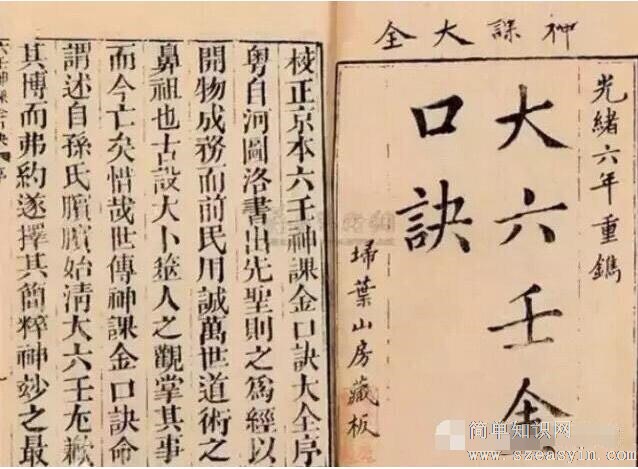 神課大全
光緒六年重鐫
大六壬金
口訣
掃葉山房藏板
校正京本六壬神課金口訣大全序
粵自河圖洛書出先聖則之為經以
開物成務而前民用誠萬世道術之
鼻祖也古設大卜筮人之觀掌其事
而今亡矣惜哉世傳神課金口訣命
謂述自孫氏臏臏始清大六壬尨歉
其博而弗約遂擇其簡粹神妙之最
簡单知识网
www.szeasyin.com